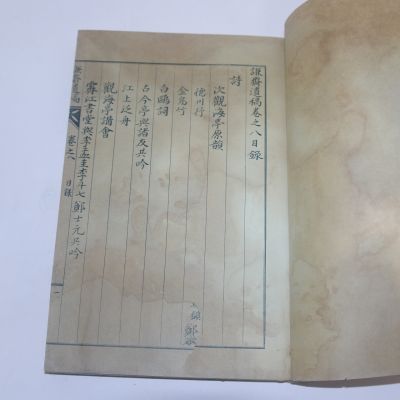 謙齋遺稿卷之八目錄
詩
次觀海亭原韻
德川行
金鰲行
白鷗詞
古今亭與諸友共吟
江上泛舟
觀海亭講會
霽江書堂與李孟圭李斗七鄭士元共吟
謙齋遺稿
卷之八
目錄
一